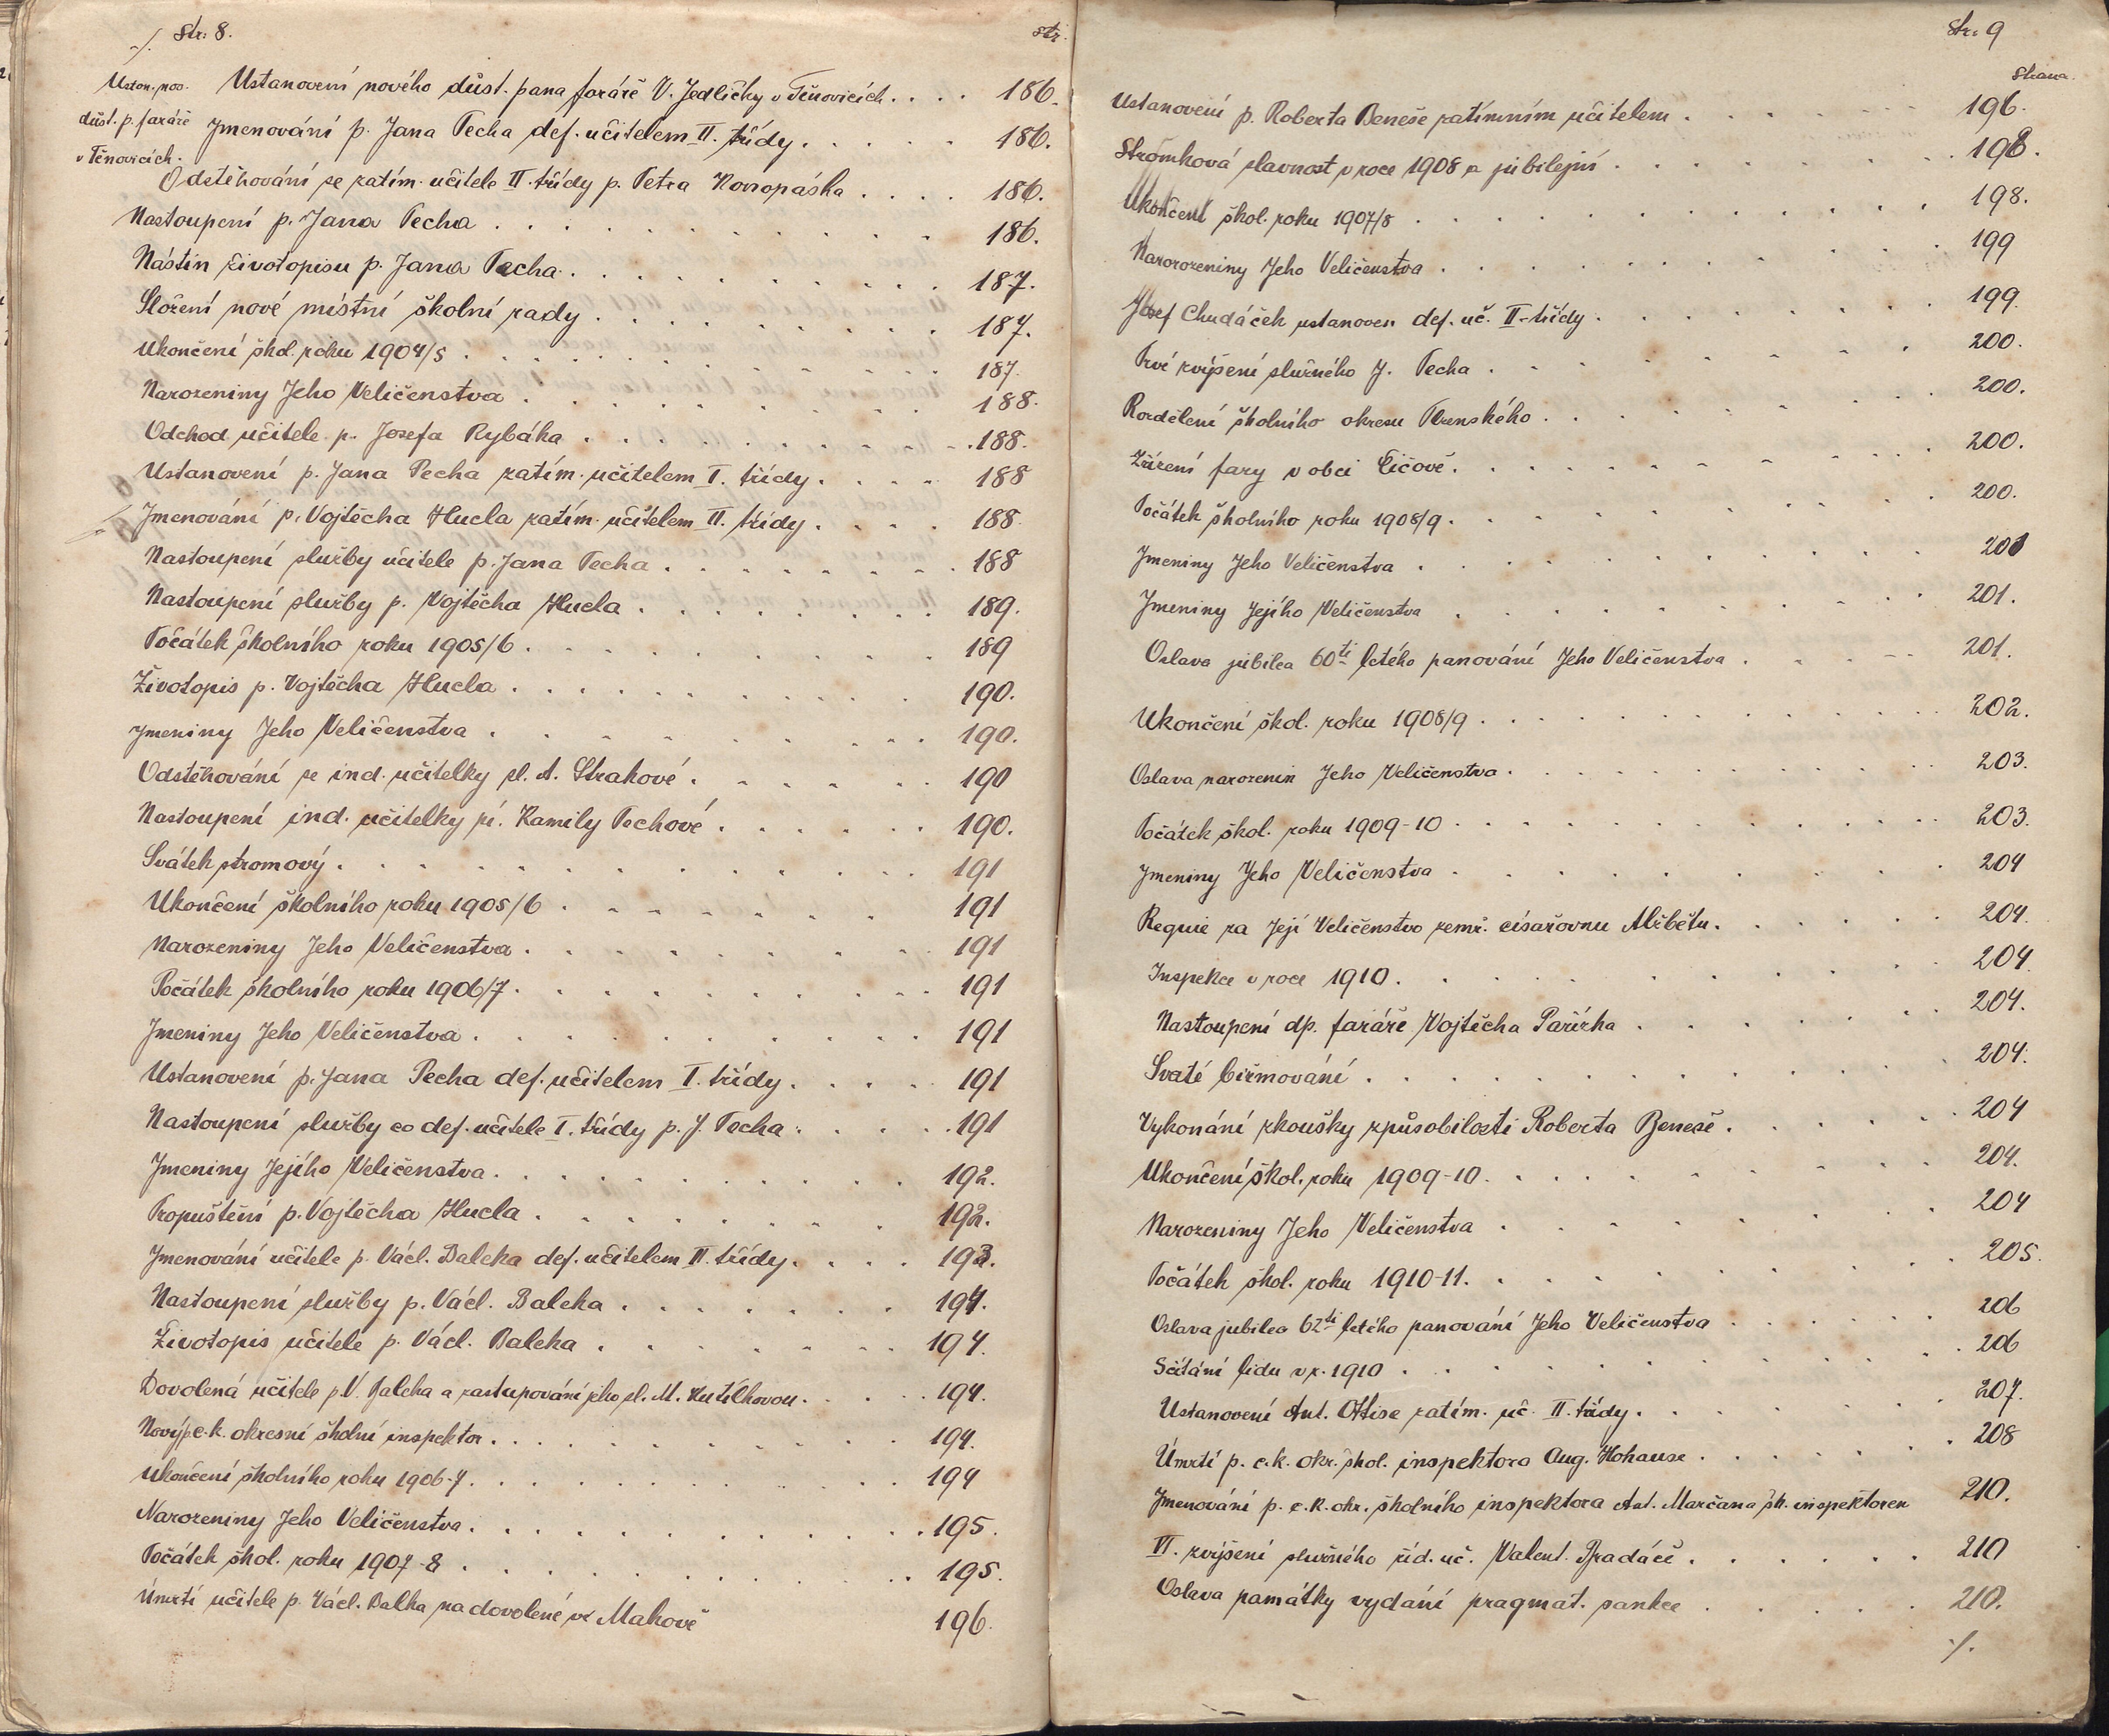 ./. Str: 8. str.
Uston. nov. Ustanovení nového důst. pana faráře V. Jedličky v Těnovicích. . . . 186.
důst. p. faráře Jmenování p. Jana Pecha def. učitelem II. třídy. . . . . 186.
v Těnovicích. Odstěhování se zatím. učitele II. třídy p. Petra Konopáska . . . . 186.
Nastoupení p. Jana Pecha . . . . . . . . . . 186.
Nástin životopisu p. Jana Pecha. . . . . . . . . 187.
Složení nové místní školní rady . . . . . . . . 187.
Ukončení škol. roku 1904/5 . . . . . . . . . . 187.
Narozeniny Jeho Veličenstva . . . . . . . . . 188.
Odchod učitele p. Josefa Rybáka . . . . . . . . 188.
Ustanovení p. Jana Pecha zatím. učitelem I. třídy . . . . 188
Jmenování p. Vojtěcha Hucla zatím. učitelem II. třídy . . . . 188.
Nastoupení služby učitele p. Jana Pecha . . . . . . . 188
Nastoupení služby p. Vojtěcha Hucla . . . . . . . 189.
Počátek školního roku 1905/6 . . . . . . . . . 189
Životopis p. Vojtěcha Hucla . . . . . . . . . . 190.
Jmeniny Jeho Veličenstva . . . . . . . . . . 190.
Odstěhování se ind. učitelky sl. A. Strakové . . . . . . 190
Nastoupení ind. učitelky pí. Kamily Pechové . . . . . . 190.
Svátek stromový . . . . . . . . . . . . 191
Ukončení školního roku 1905/6 . . . . . . . . 191
Narozeniny Jeho Veličenstva . . . . . . . . . 191
Počátek školního roku 1906/7 . . . . . . . . . 191
Jmeniny Jeho Veličenstva . . . . . . . . . . 191
Ustanovení p. Jana Pecha def. učitelem I. třídy . . . . 191
Nastoupení služby co def. učitele I. třídy p. J. Pecha . . . . . 191
Jmeniny Jejího Veličenstva . . . . . . . . . . 192.
Propuštění p. Vojtěcha Hucla . . . . . . . . 192.
Jmenování učitele p. Václ. Baleka def. učitelem II. třídy . . . . 193.
Nastoupení služby p. Václ. Baleka . . . . . . . 194.
Životopis učitele p. Václ. Baleka . . . . . . . 194.
Dovolená učitele p. V. Baleka a zastupování jeho sl. M. Kutílkovou . . . . 194.
Nový p. c. k. okresní školní inspektor . . . . . . . . . 194.
Ukončení školního roku 1906-7 . . . . . . . . . 194
Narozeniny Jeho Veličenstva . . . . . . . . . . 195.
Počátek škol. roku 1907-8 . . . . . . . . . . 195.
Úmrtí učitele p. Václ. Balka na dovolené ve Makově 196.
Str. 9
Strana.
Ustanovení p. Roberta Beneše zatímním učitelem . . . . . . 196.
Stromková slavnost v roce 1908 a jubilejní . . . . . . . . 198.
Ukončení škol. roku 1907/8 . . . . . . . . . . . 198.
Narozeniny Jeho Veličenstva . . . . . . . . . . 199
Josef Chudáček ustanoven def. uč. II. třídy . . . . . . . 199.
Prvé zvýšení služného J. Pecha . . . . . . . . 200.
Rozdělení školního okresu Plzenského . . . . . . . . 200.
Zřízení fary v obci Číčově . . . . . . . . . . 200.
Počátek školního roku 1908/9 . . . . . . . . . 200.
Jmeniny Jeho Veličenstva . . . . . . . . . . 201
Jmeniny Jejího Veličenstva . . . . . . . . . . 201.
Oslava jubilea 60ti letého panování Jeho Veličenstva . . . . . 201.
Ukončení škol. roku 1908/9 . . . . . . . . . . . 202.
Oslava narozenin Jeho Veličenstva . . . . . . . . . . 203.
Počátek škol. roku 1909-10 . . . . . . . . . . . . 203.
Jmeniny Jeho Veličenstva . . . . . . . . . . 204
Requie za Její Veličenstvo zemř. císařovnu Alžbětu . . . . . . 204.
Inspekce v roce 1910 . . . . . . . . . . . 204.
Nastoupení dp. faráře Vojtěcha Pařízka . . . . . . . 204.
Svaté biřmování . . . . . . . . . . . 204.
Vykonání zkoušky způsobilosti Roberta Beneše . . . . . . 204
Ukončení škol. roku 1909-10 . . . . . . . . . . 204.
Narozeniny Jeho Veličenstva . . . . . . . . . 204
Počátek škol. roku 1910-11 . . . . . . . . . . 205.
Oslava jubilea 62ti letého panování Jeho Veličenstva . . . . . . 206
Sčítání lidu v r. 1910 . . . . . . . . . . . 206
Ustanovení Ant. Ottise zatím. uč. II. třídy . . . . . . . 207.
Úmrtí p. c. k. okr. škol. inspektora Aug. Hohause . . . . . . 208
Jmenování p. c. k. okr. školního inspektora Ant. Marčana šk. inspektorem 210.
VI. zvýšení služného říd. uč. Valent. Bradáče . . . . . . 210
Oslava památky vydání pragmat. sankce . . . . . 210.
./.